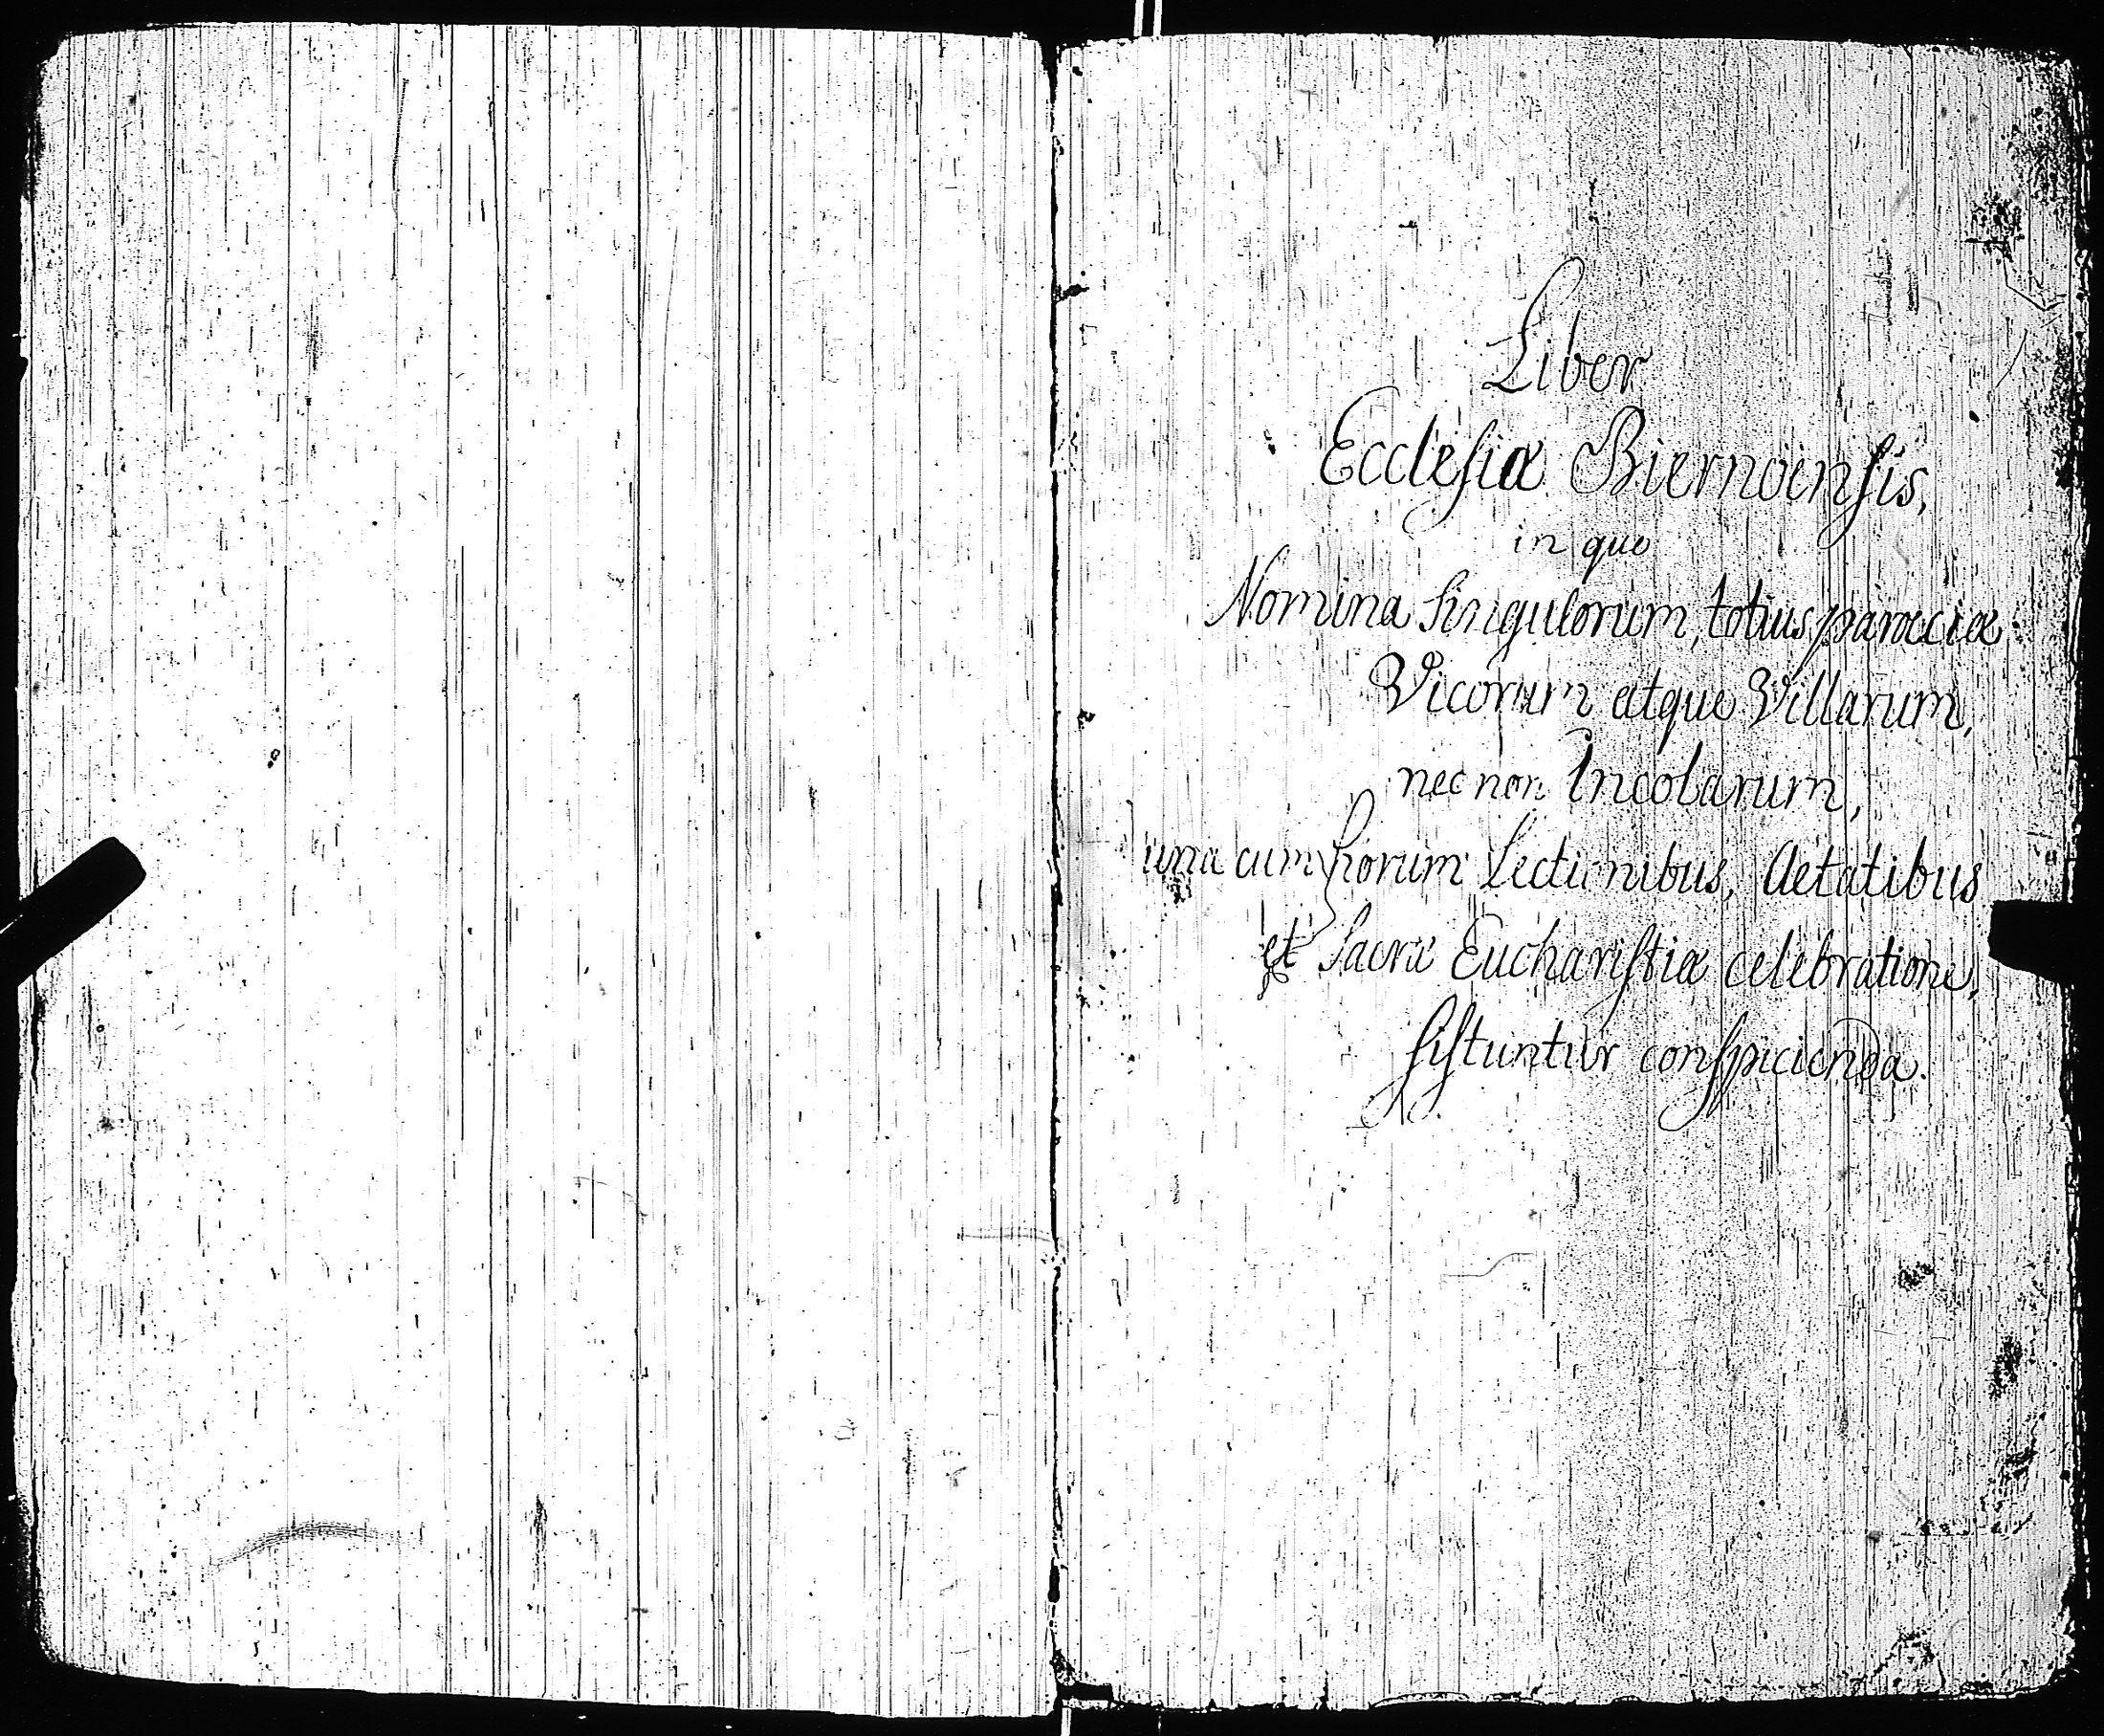 Liber
Ecclesiæ Biernöensis,
in quo
Nomina singulorum, totius paræciæ
Vicorum atque Villarum,
nec non Incolarum,
una cum horum Lectionibus, Aetatibus
et Sacræ Eucharistiæ celebratione,
sistuntur conspicienda.